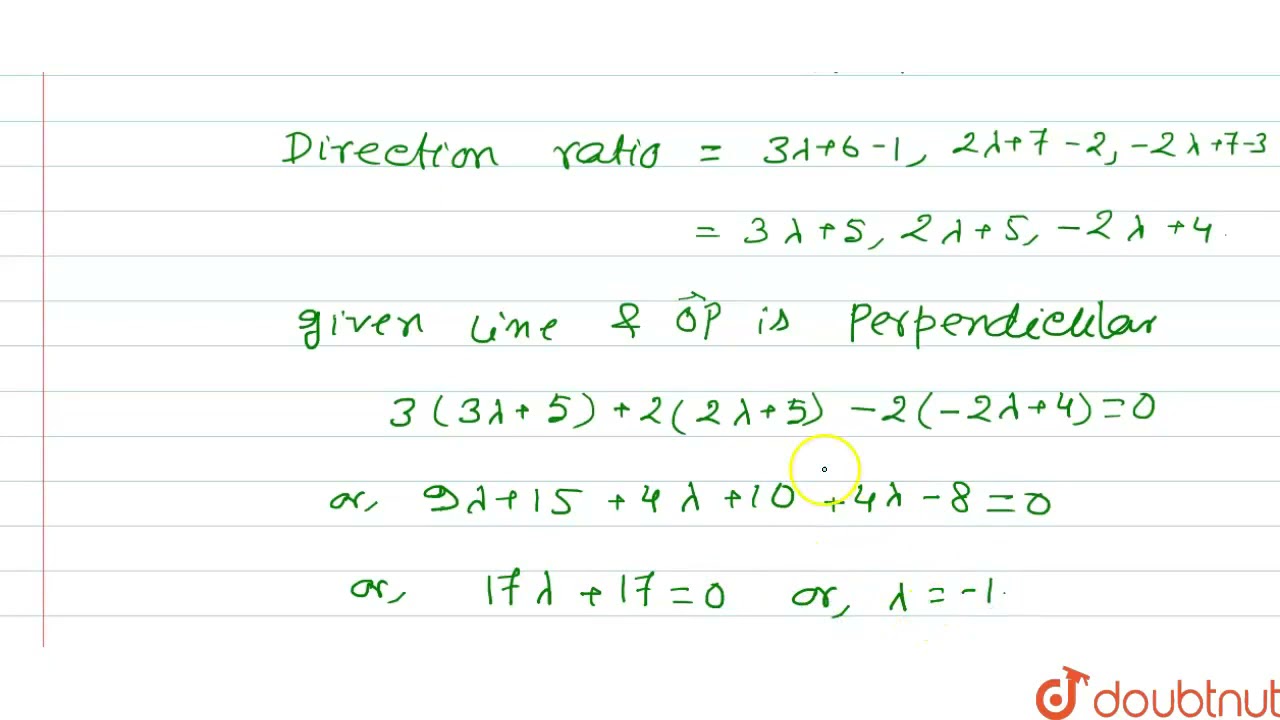 Direction ratio = 3λ+6-1, 2λ+7-2, -2λ+7-3
= 3λ+5, 2λ+5, -2λ+4.
given line & OP⃗ is perpendicular
3(3λ+5)+2(2λ+5)-2(-2λ+4)=0
or, 9λ+15+4λ+10+4λ-8=0
or, 17λ+17=0 or, λ=-1.
doubtnut